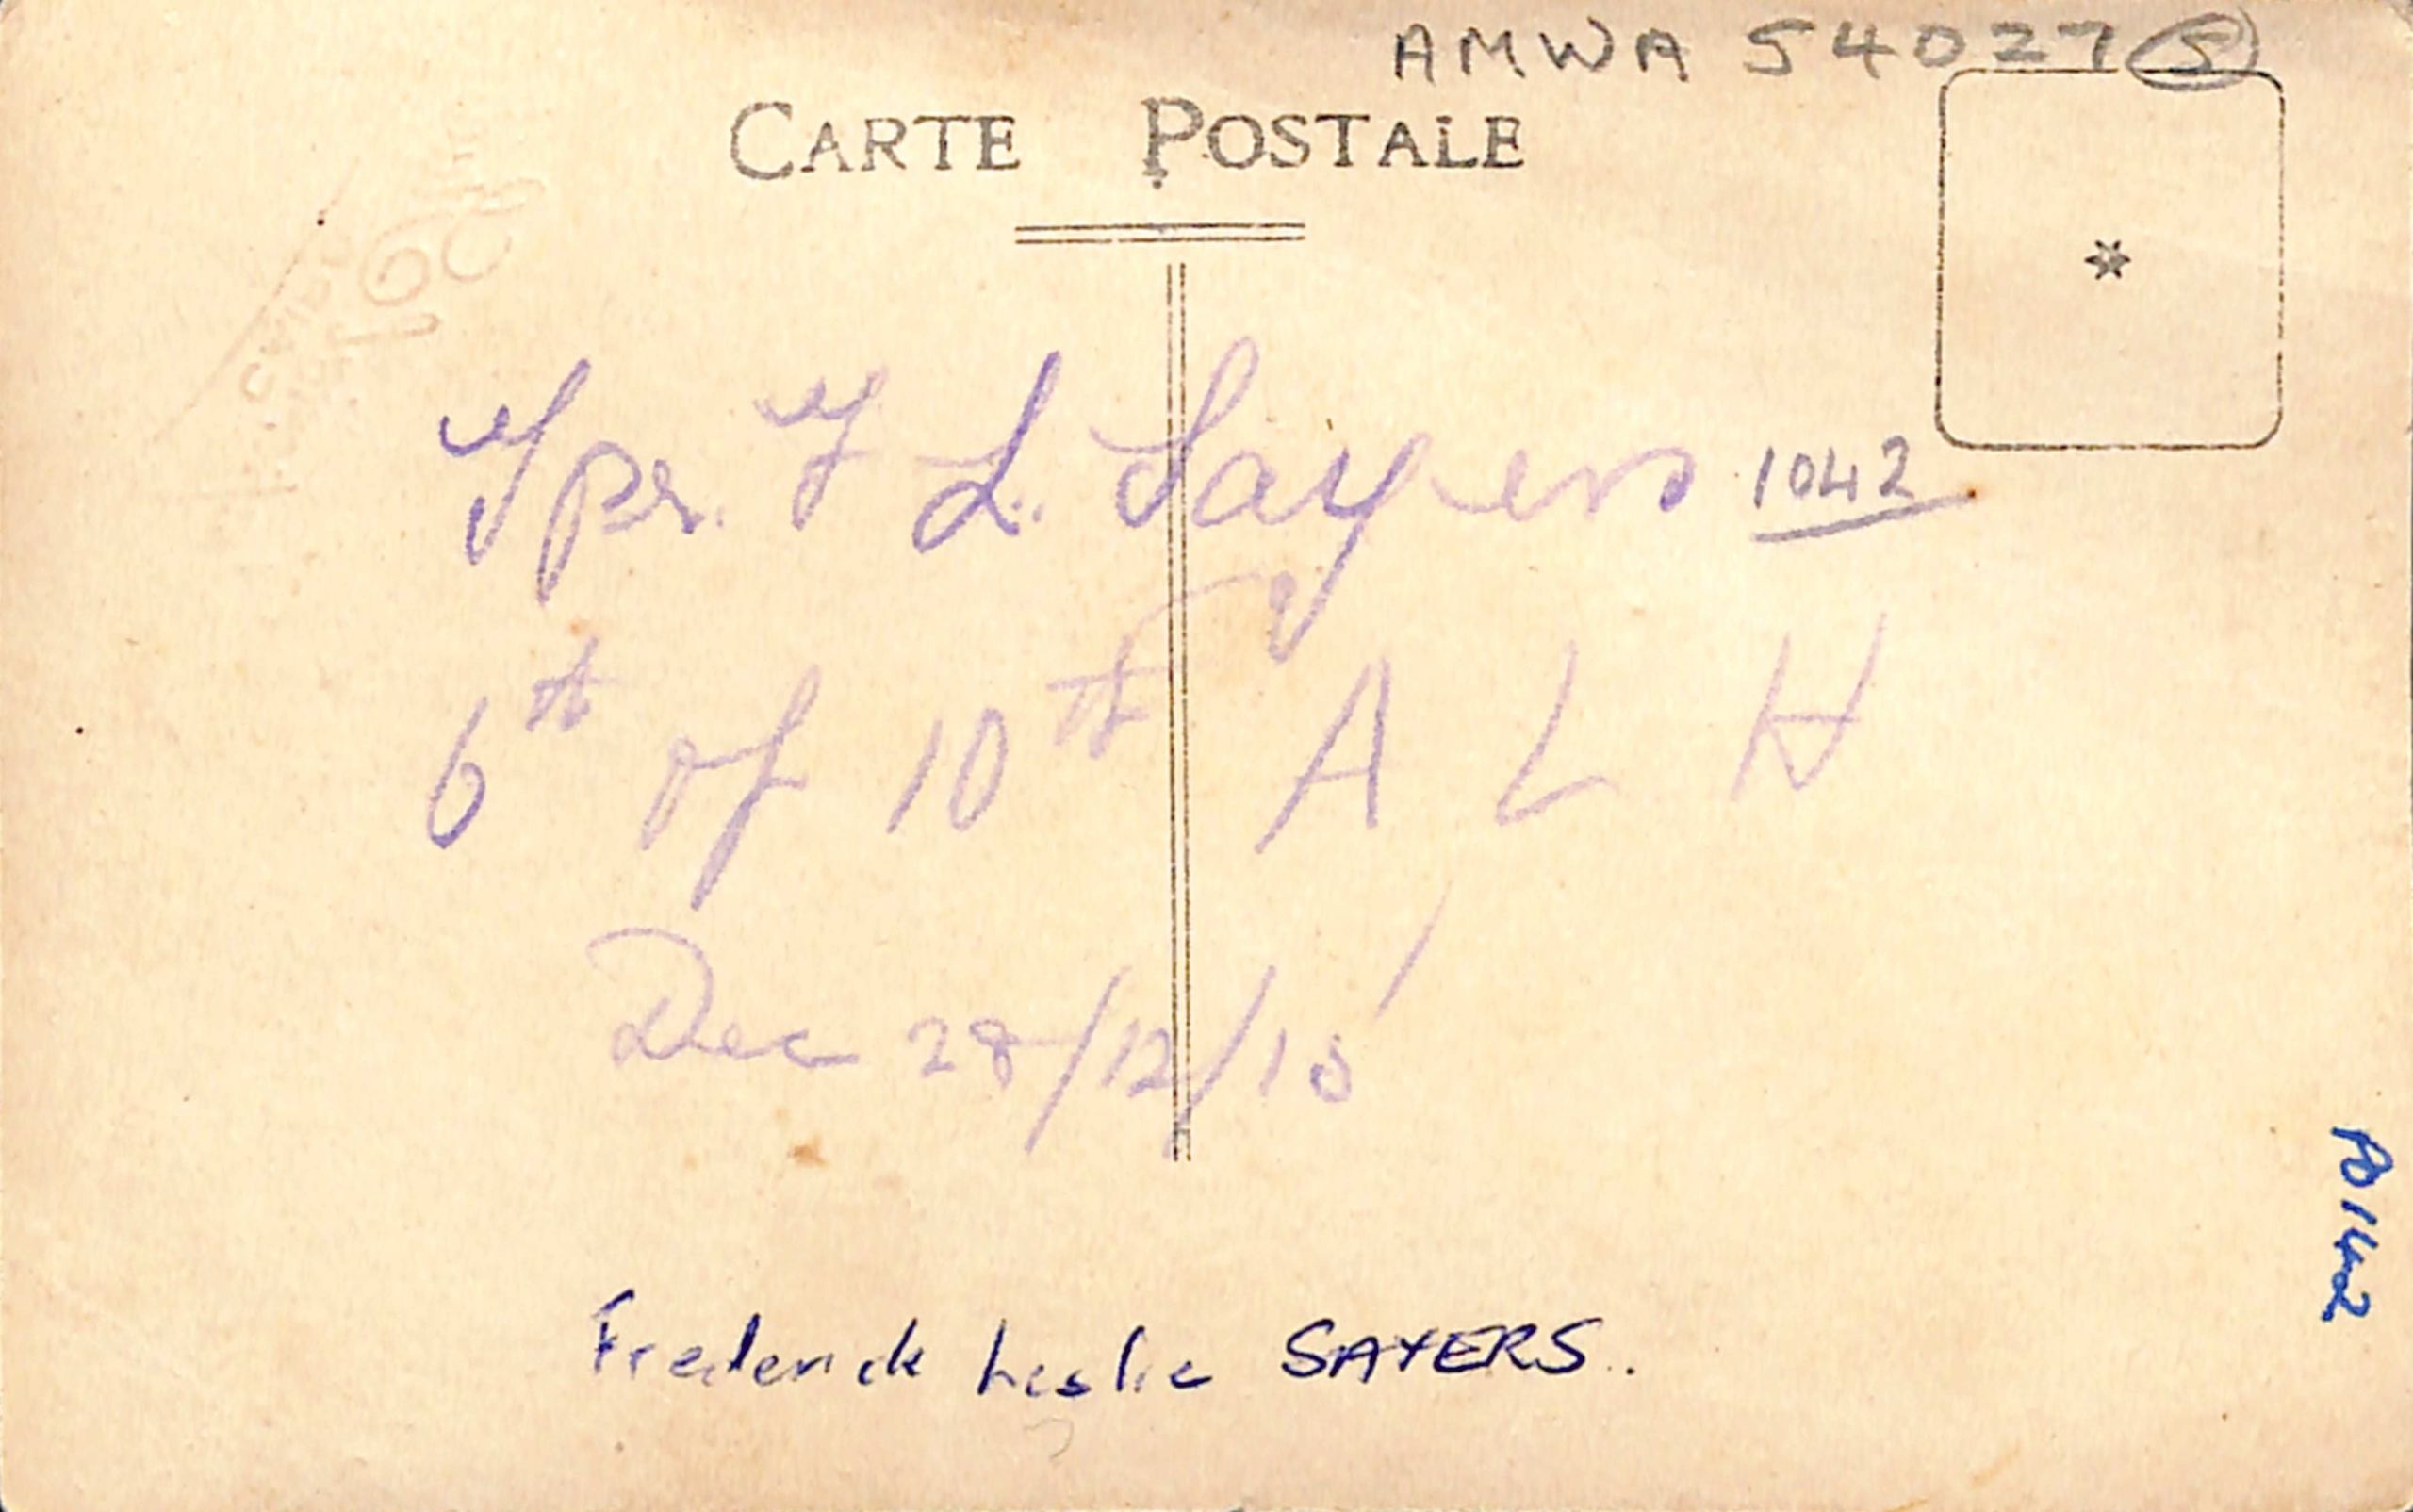 AMWA 54027 S
CARTE POSTALE
Tpr. F L. Sayers 1042
6th of 10th A L H
Dec 28/12/15
Frederick Leslie SAYERS.